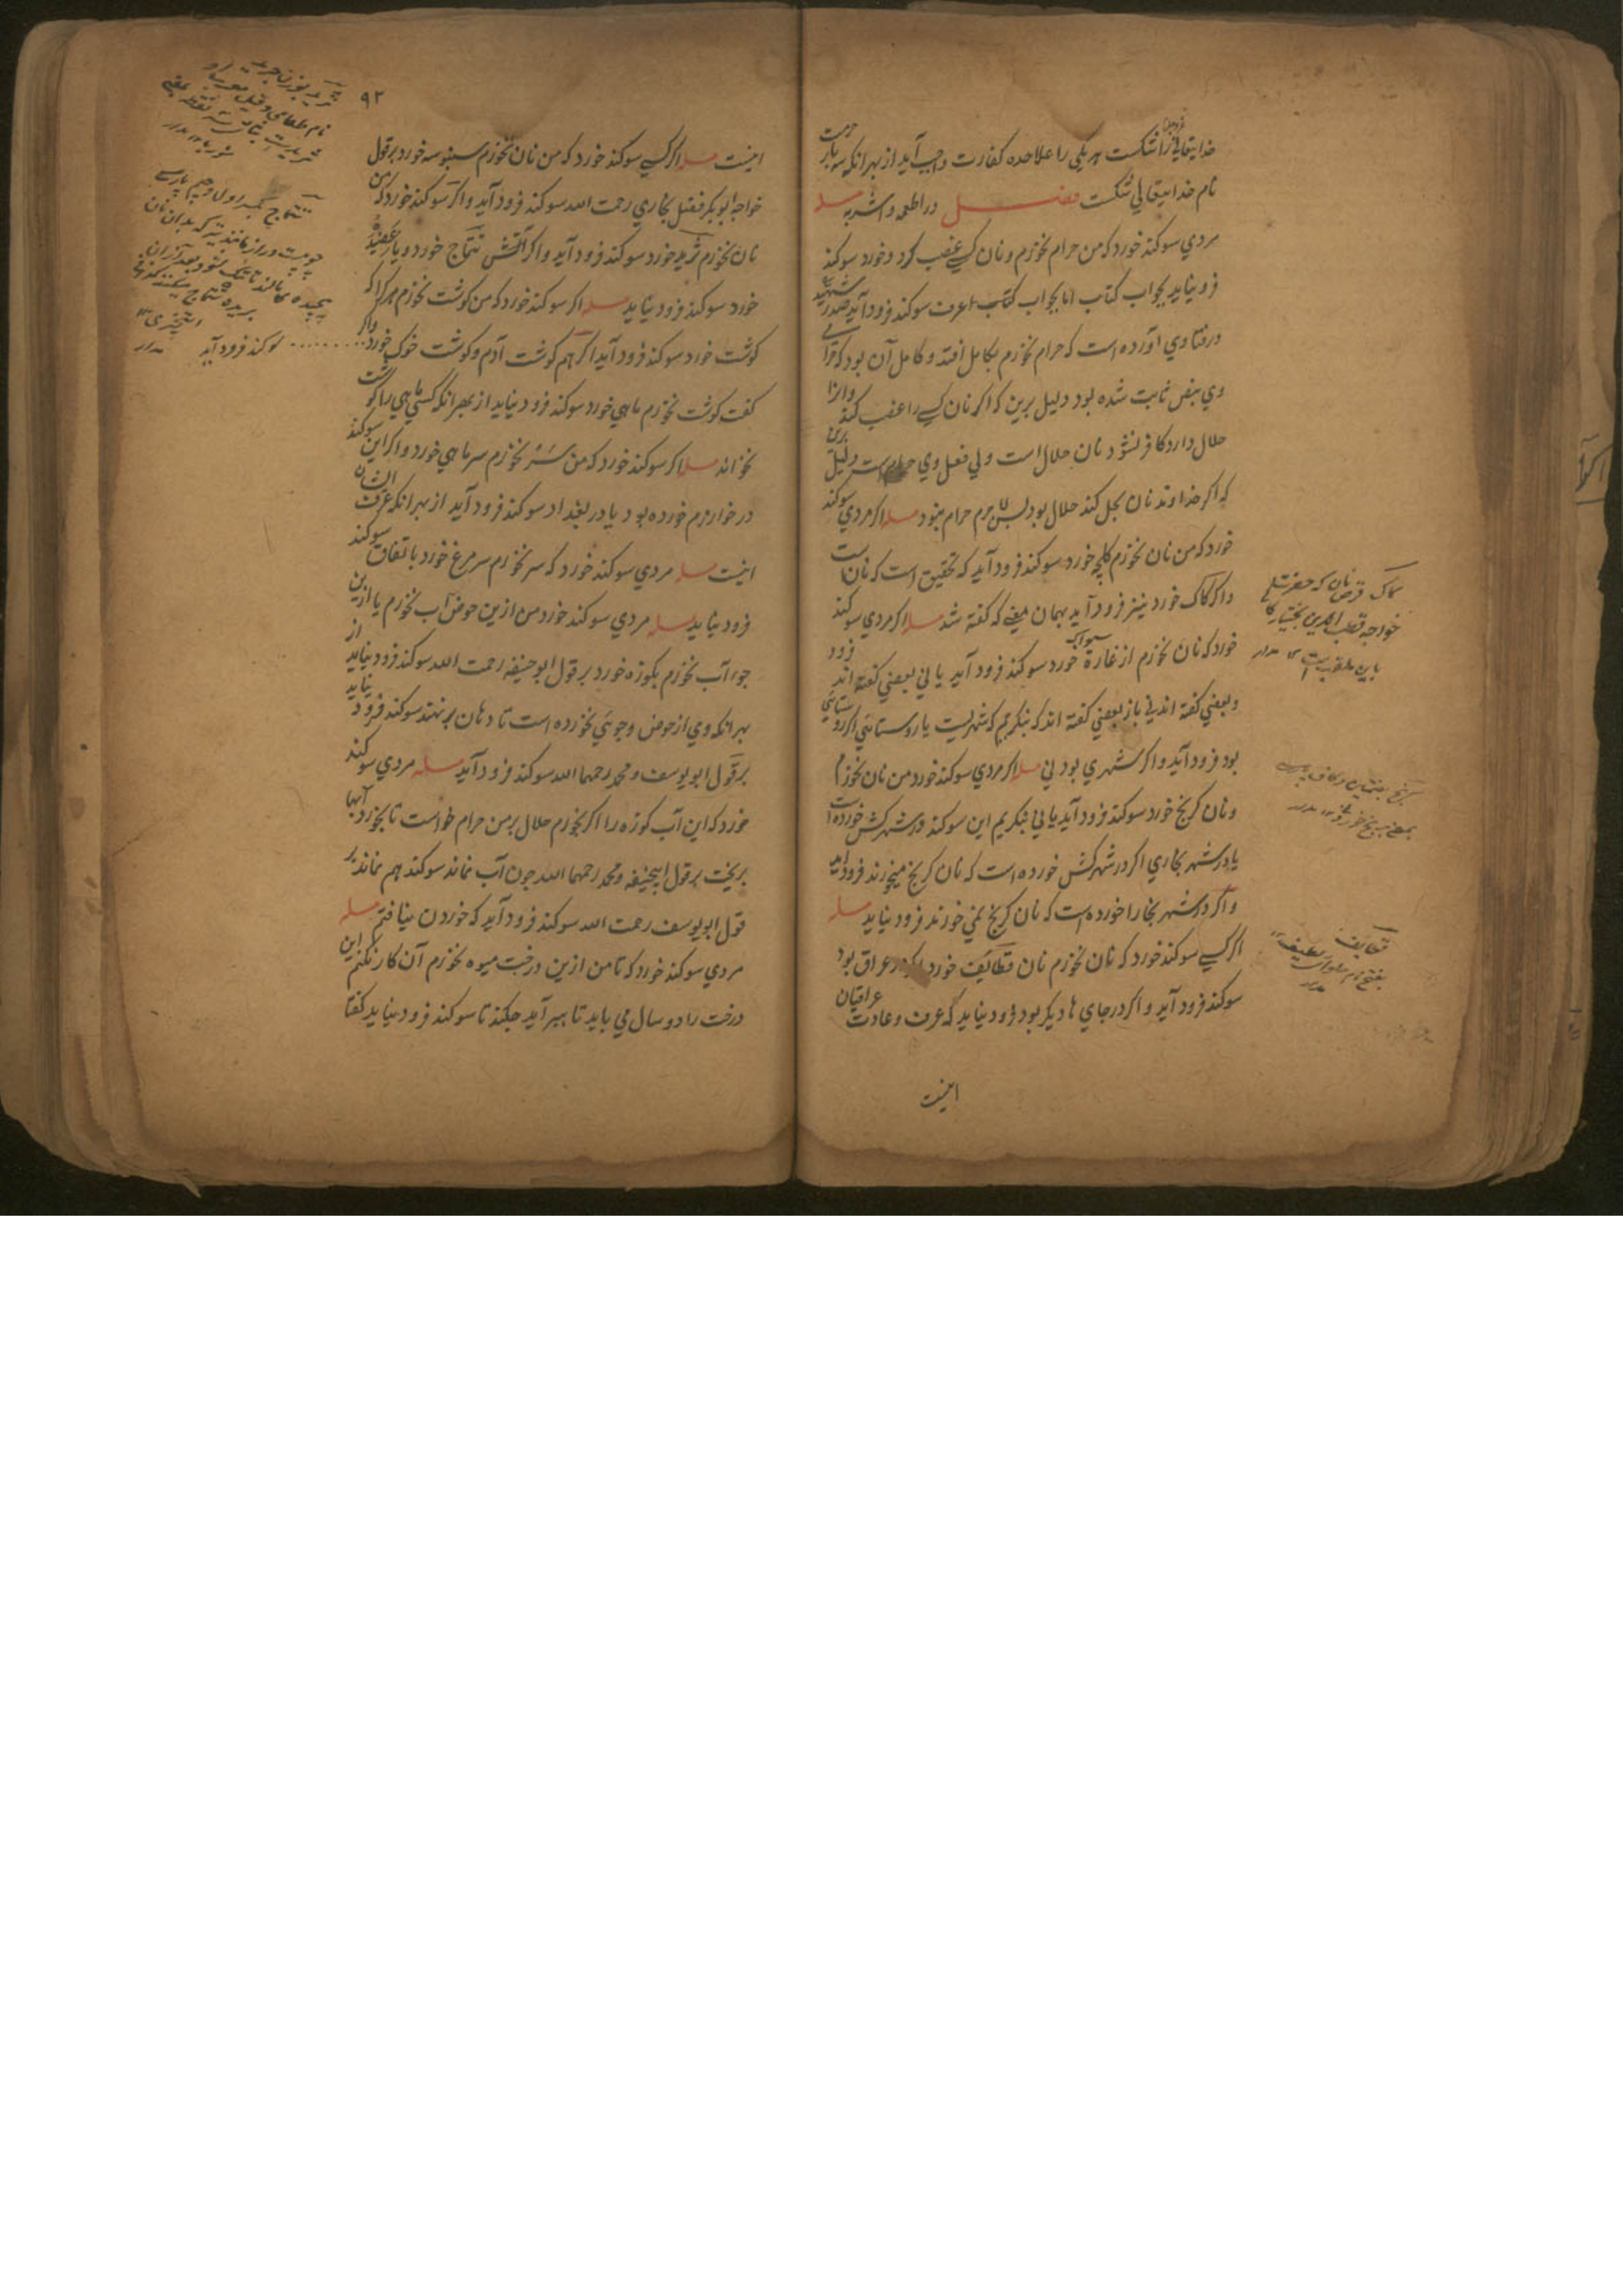 خدایتعالی را شکست هر یکی را علاحده کفارت واجب آید از بهر انکه سه بار حرمت
نام خدایتعالی شکست فصل در اطعمه و اشربه مسله
مردي سوکند خورد که من حرام نخورم و نان کسے غصب کرد و خورد سوکند
فرو نیاید بجواب کتاب اما بجواب عرف سوکند فرود آید صدر شهید
در فتاوي آورده است که حرام نخورم بکامل افتد و کامل آن بود که حرامی
وي بنص ثابت شده بود دلیل برین که اکر نان کسے را غصب کند و انرا
حلال دارد کافر نشود نان حلال است ولي فعل وي حرام است دلیل برین
که اکر خداوند نان بحل کند حلال بود پس لا جرم حرام نبود مسله اکر مردي سوکند
خورد که من نان نخورم کلیچه خورد سوکند فرود آید که تحقیق است که نان است
و اکر کاک خورد نیز فرود آید بهمان معنے که کفته شد مسله اکر مردي سوکند
خورد که نان نخورم از غازه خورد سوکند فرود آید یا نی بعضي کفته اند فرود
و بعضي کفته اند نی باز بعضي کفته اند که بنکریم که شهریست یا روستائي اکر روستائي
بود فرود آید و اکر شهري بود نی مسله اکر مردي سوکند خورد من نان نخورم
و نان کرنج خورد سوکند فرود آید یا نی بنکریم این سوکند در شهر کش خورده است
یا در شهر بخاري اکر در شهر کش خورده است که نان کرنج میخورند فرود آید
و اکر در شهر بخارا خورده است که نان کرنج نمي خورند فرود نیاید مسله
اکر کسے سوکند خورد که نان نخورم نان قطایف خورد اکر در عراق بود
سوکند فرود آید و اکر در جاي ها دیکر بود فرود نیاید که عرف و عادت عراقیان
اینست
کاک قرص نان که حضرت
خواجه قطب الدین بختیار کا
باین ملقب است
کرنج
بمعنے برنج
قطایف
۹۲
اینست مسله اکر کسے سوکند خورد که من نان نخورم سنبوسه خورد بر قول
خواجه ابوبکر فضل بخاري رحمت الله سوکند فرود آید و اکر سوکند خورد که من
نان نخورم ثرید خورد سوکند فرود آید و اکر آتش تتماج خورد و یا
خورد سوکند فرود نیاید مسله اکر سوکند خورد که من کوشت نخورم هر کرا که
کوشت خورد سوکند فرود آید اکر هم کوشت آدم و کوشت خوک خورد و اکر
کفت کوشت نخورم ماهي خورد سوکند فرود نیاید از بهر انکه کسي ماهي را کوشت
نخواند مسله اکر سوکند خورد که من سر نخورم سر ماهي خورد و اکر این سوکند
در خوارزم خورده بود یا در بغداد سوکند فرود آید از بهر انکه عرف ایشان
اینست مسله مردي سوکند خورد که سر نخورم سر مرغ خورد باتفاق سوکند
فرود نیاید مسله مردي سوکند خورد من ازین حوض آب نخورم یا ازین
جوء آب نخورم بکوزه خورد بر قول ابو حنیفه رحمت الله سوکند فرود نیاید از
بهر انکه وي از حوض و جوئي نخورده است تا دهان بر ننهد سوکند فرود نیاید
بر قول ابو یوسف و محمد رحمهما الله سوکند فرود آید مسله مردي سوکند
خورد که این آب کوزه را اکر نخورم حلال بر من حرام خواست تا بخورد آبها
بریخت بر قول ابیحنیفه و محمد رحمهما الله چون آب نماند سوکند هم نماند بر
قول ابو یوسف رحمت الله سوکند فرود آید که خوردن نیافتم مسله
مردي سوکند خورد که تا من ازین درخت میوه نخورم آن کار نکنم این
درخت را دو سال مي باید تا ببر آید چکند تا سوکند فرود نیاید کفتا
ثرید
نام طعامي
تتماج بکسر اول و جیم پارسے
سوکند فرود آید